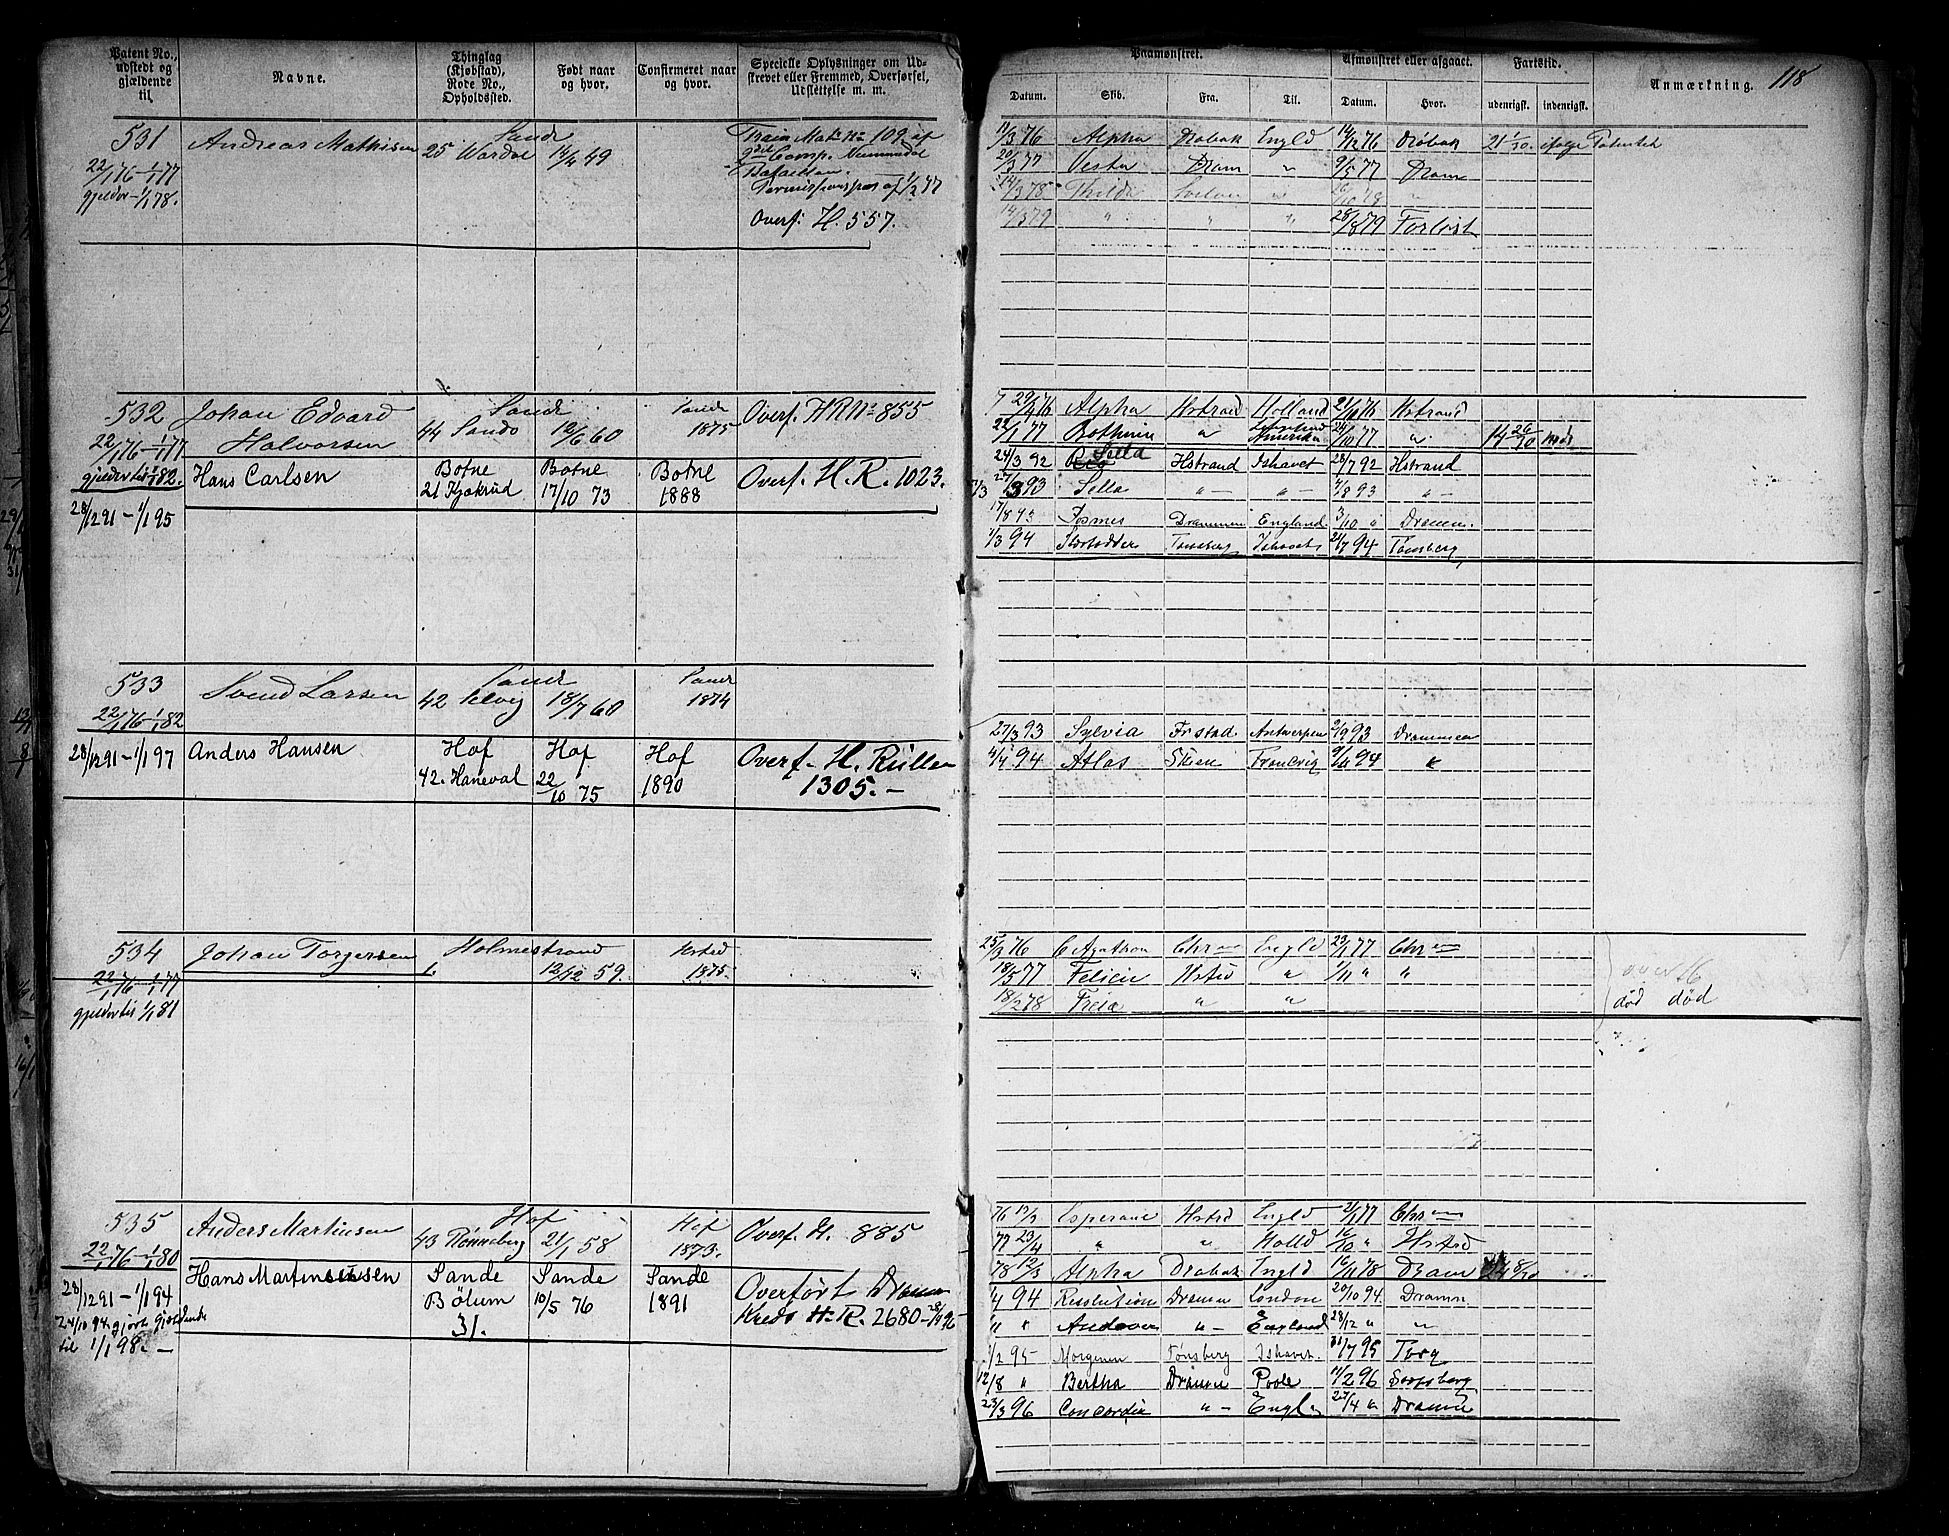 Patent No., udstedt og gjældende til.
Navne.
Thinglag (Kjøbstad), Rode No., Opholdssted.
Født naar og hvor.
Confirmeret naar og hvor.
Specielle Oplysninger om Udskrevet eller Fremmed, Overførsel, Udslettelse m. m.
Paamønstret.
Afmønstret eller afgaaet.
Fartstid.
Anmærkning. 118
Datum. Skib. Fra. Til. Datum. Hvor. udenrigsk. indenrigsk.
531 Andreas Mathisen Sande
22/1 76 - 1/1 77 25 14/4 49
gjelder - 1/1 78.
109 af
Comp. Nummedal
Bataillon.
Overf. H. 557.
11/3 76 Alpha Drøbak Engld 14/12 76 Drøbak 21 1/30 ifølge Patentet
20/3 77 Vesta Dram " 9/5 77 Dram
14/3 78 Thilda "
14/3 79 " " " 28/3 79 Forlist
532 Johan Edvard Halvorsen Sande Sande 1875 Overf. HR No 855
22/1 76 - 1/1 77 44 Sando 12/6 60
gjelder til 1/1 82.
29/4 76 Alpha Hstrand Holland 21/10 76 Hstrand
22/1 77 Bothnia " Amerika 24/10 77 " 14 26/30 inds
Hans Carlsen Botne Botne Botne Overf. H. R. 1023.
28/12 91 - 1/1 95 21 Kjøkrud 17/10 73 1888
24/3 92 Sella Hstrand Ishavet 28/7 92 Hstrand
93 Sella " - " - /8 93 " -
17/8 93 Drammen England 3/10 " Dramn.
1/3 94 Tønsberg Ishavet 21/7 94 Tønsberg
533 Svend Larsen Sande Sande 1874
22/1 76 - 1/1 82 42 Selvig 18/7 60
28/12 91 - 1/1 97 Anders Hansen Hof Hof Hof Overf - H. Rullen
42. Haneval 22/10 75 1890 1305. -
27/3 93 Sylvia Frstad Antwerpen 2/9 93 Drammen
4/4 94 Atlas Skien 9/11 94 "
534 Johan Torgersen Holmestrand Hstrd
22/1 76 - 1/1 77 1. 12/12 59. 1875.
gjelder til 1/1 81
25/3 76 C Agathon Chr Engld 23/1 77 Chr
18/5 77 Felicia Hstrd " /11 " "
18/2 78 Freia " "
død død
535 Anders Martinsen Hof Hof Overf. H. 885
22/1 76 - 1/1 80 43 Rønneberg 21/1 58 1873.
Hans Martinsen Sande Sande Sande Overført Dramn
28/12 91 - 1/1 94 Bølum 10/5 76 1891 Kreds H. R. 2680 -
24/10 94 gjort gjældende 31.
til 1/1 98. -
76 13/3 Esperance Hstrd Engld 2/1 77 Chr
77 23/4 " " Holld " Hstrd
78 12/3 Alpha Drøbak Engld 16/11 78 Dram
/4 94 Resolution Dramn London 20/10 94. Dramn.
/11 " Andover " - England 28/12 " "
/2 95 Morgenen Tønsberg Ishavet. 31/7 95 Tbrg
12/8 " Bertha Dramn Poole 11/2 96 Sarpsborg
23/3 96 Concordia " - Engl 27/4 " Dramn